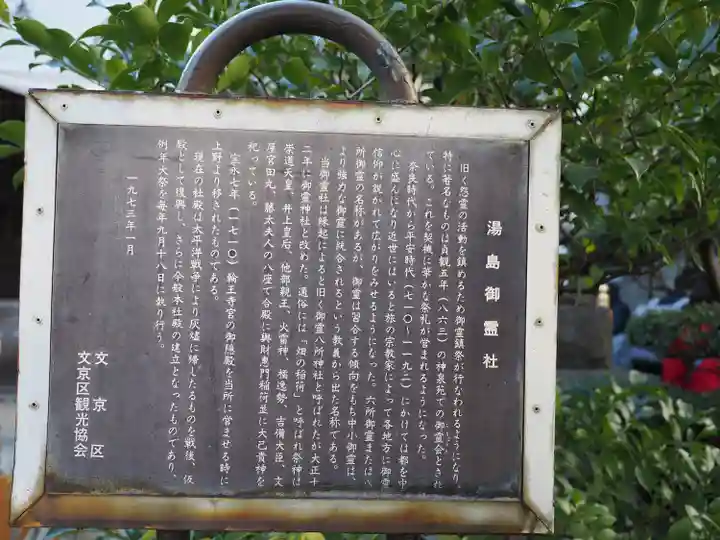 湯島御霊社
旧く怨霊の活動を鎮めるため御霊鎮祭が行なわれるようになり、
特に著名なものは貞観五年（八六三）の神泉苑での御霊会とされ
ている。これを契機に華かな祭礼が営まれるようになった。
奈良時代から平安時代（七一〇～一一九二）にかけては都を中
心に盛んになり近世にはいると旅の宗教家によって各地方に御霊
信仰が説かれて広がりをみせるようになった。六所御霊または八
所御霊の名称があるが、御霊は習合する傾向をもち中小御霊は、
より強力な御霊に統合されるという教義から出た名称である。
当御霊社は縁起によると旧く御霊八所神社と呼ばれたが大正十
二年に御霊神社と改めた。通俗には「畑の稲荷」と呼ばれ祭神は
崇道天皇、井上皇后、他部親王、火雷神、橘逸勢、吉備大臣、文
屋宮田丸、藤太夫人の八座で合殿に與財恵門稲荷並に大己貴神を
祀っている。
宝永七年（一七一〇）輪王寺宮の御隠殿を当所に営ませる時に
上野より移されたものである。
現在の社殿は太平洋戦争により灰燼に帰したるものを戦後、仮
殿として復興し、さらに今般本社殿の建立となったものであり、
例年大祭を毎年九月十八日に執り行う。
一九七三年一月
文京区
文京区観光協会